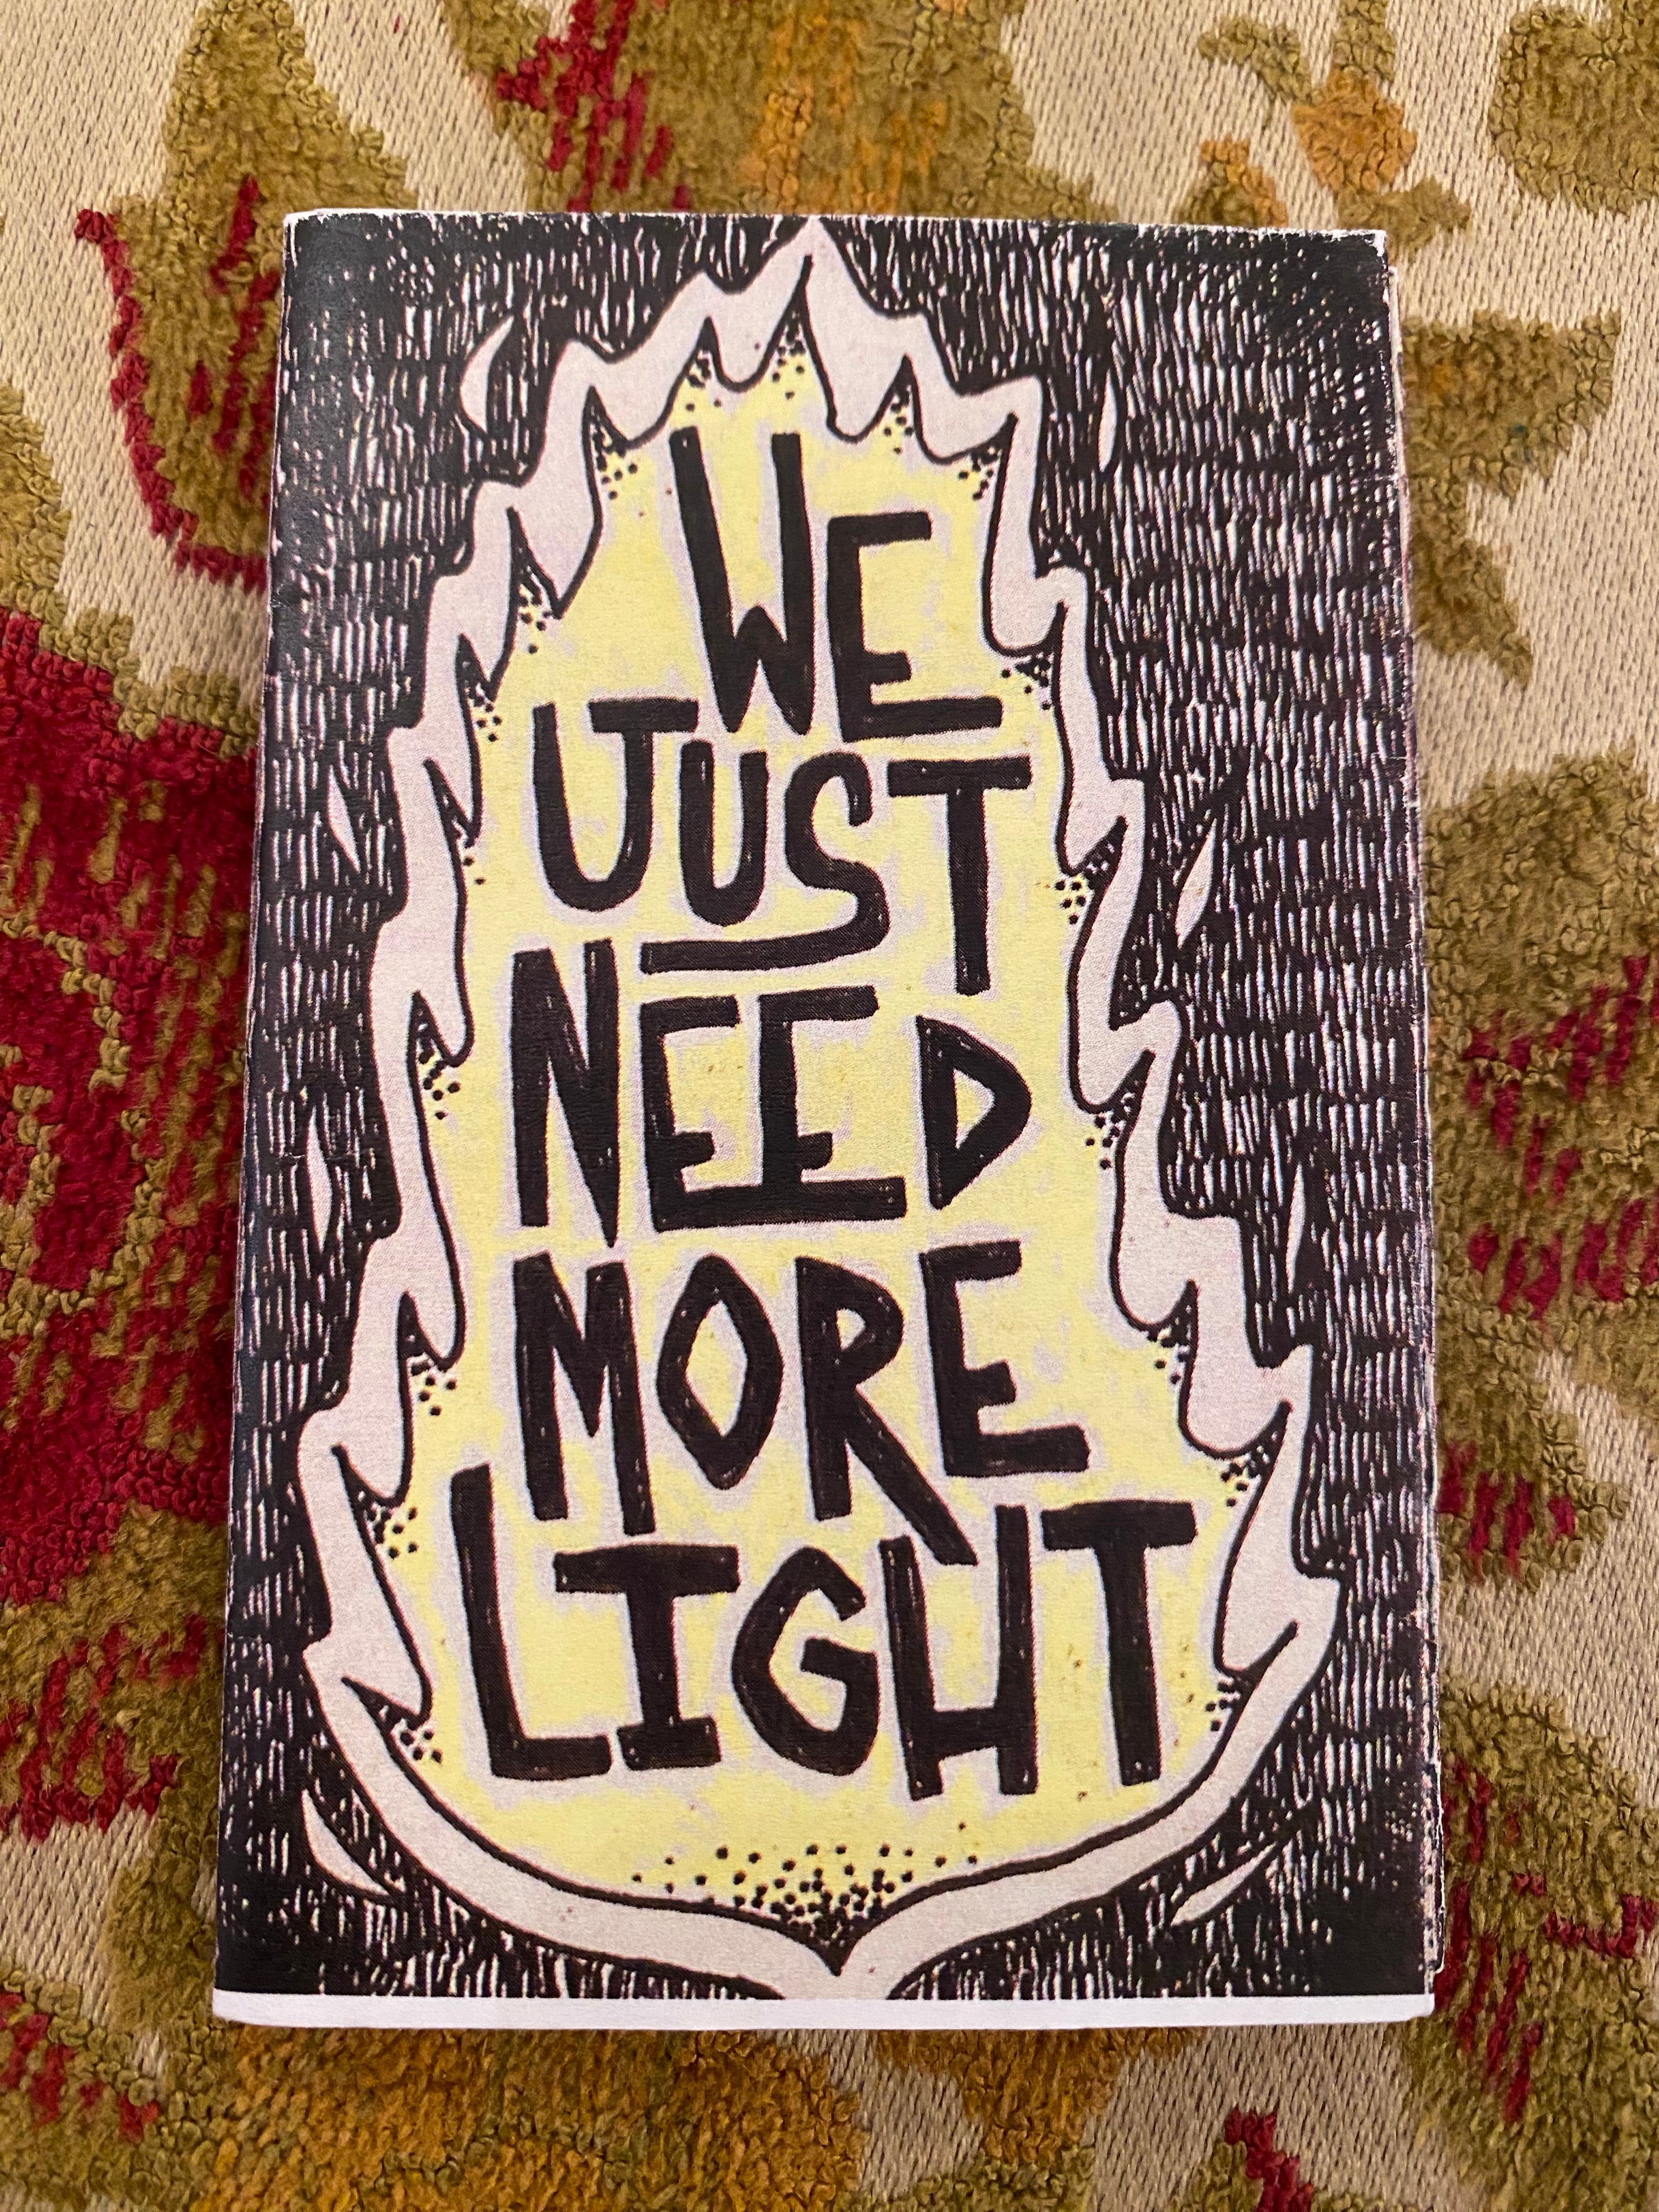 WE
JUST
NEED
MORE
LIGHT